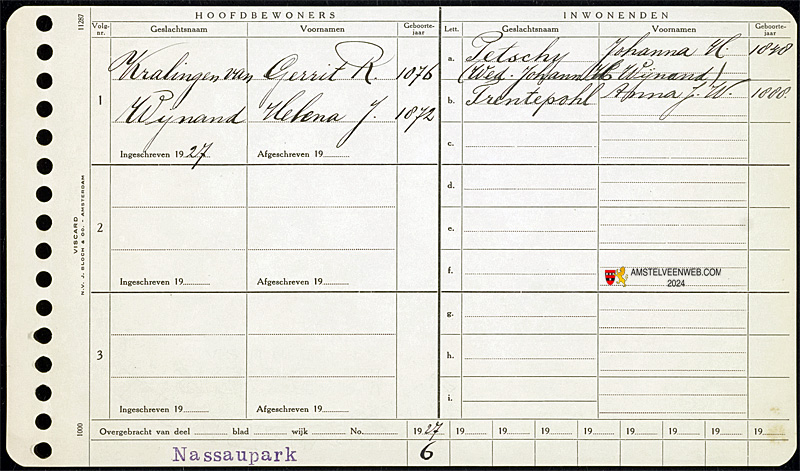 11287
HOOFDBEWONERS
INWONENDEN
Volg-nr.
Geslachtsnaam
Voornamen
Geboorte-jaar
Lett.
Geslachtsnaam
Voornamen
Geboorte-jaar
1
Kralingen van Gerrit R. 1876
Wynand Helena J. 1872
Ingeschreven 1927
Afgeschreven 19
a. Petschy Johanna H. 1848
(Wed. Johann H. Wijnand)
b. Trentepohl Anna J. W. 1888.
c.
2
Ingeschreven 19
Afgeschreven 19
d.
e.
f.
AMSTELVEENWEB.COM
2024
3
Ingeschreven 19
Afgeschreven 19
g.
h.
i.
VISCARD
N.V. J. BLOCH & CO. - AMSTERDAM
1000
Overgebracht van deel blad wijk No. 1927 19 19 19 19 19 19 19 19
Nassaupark 6